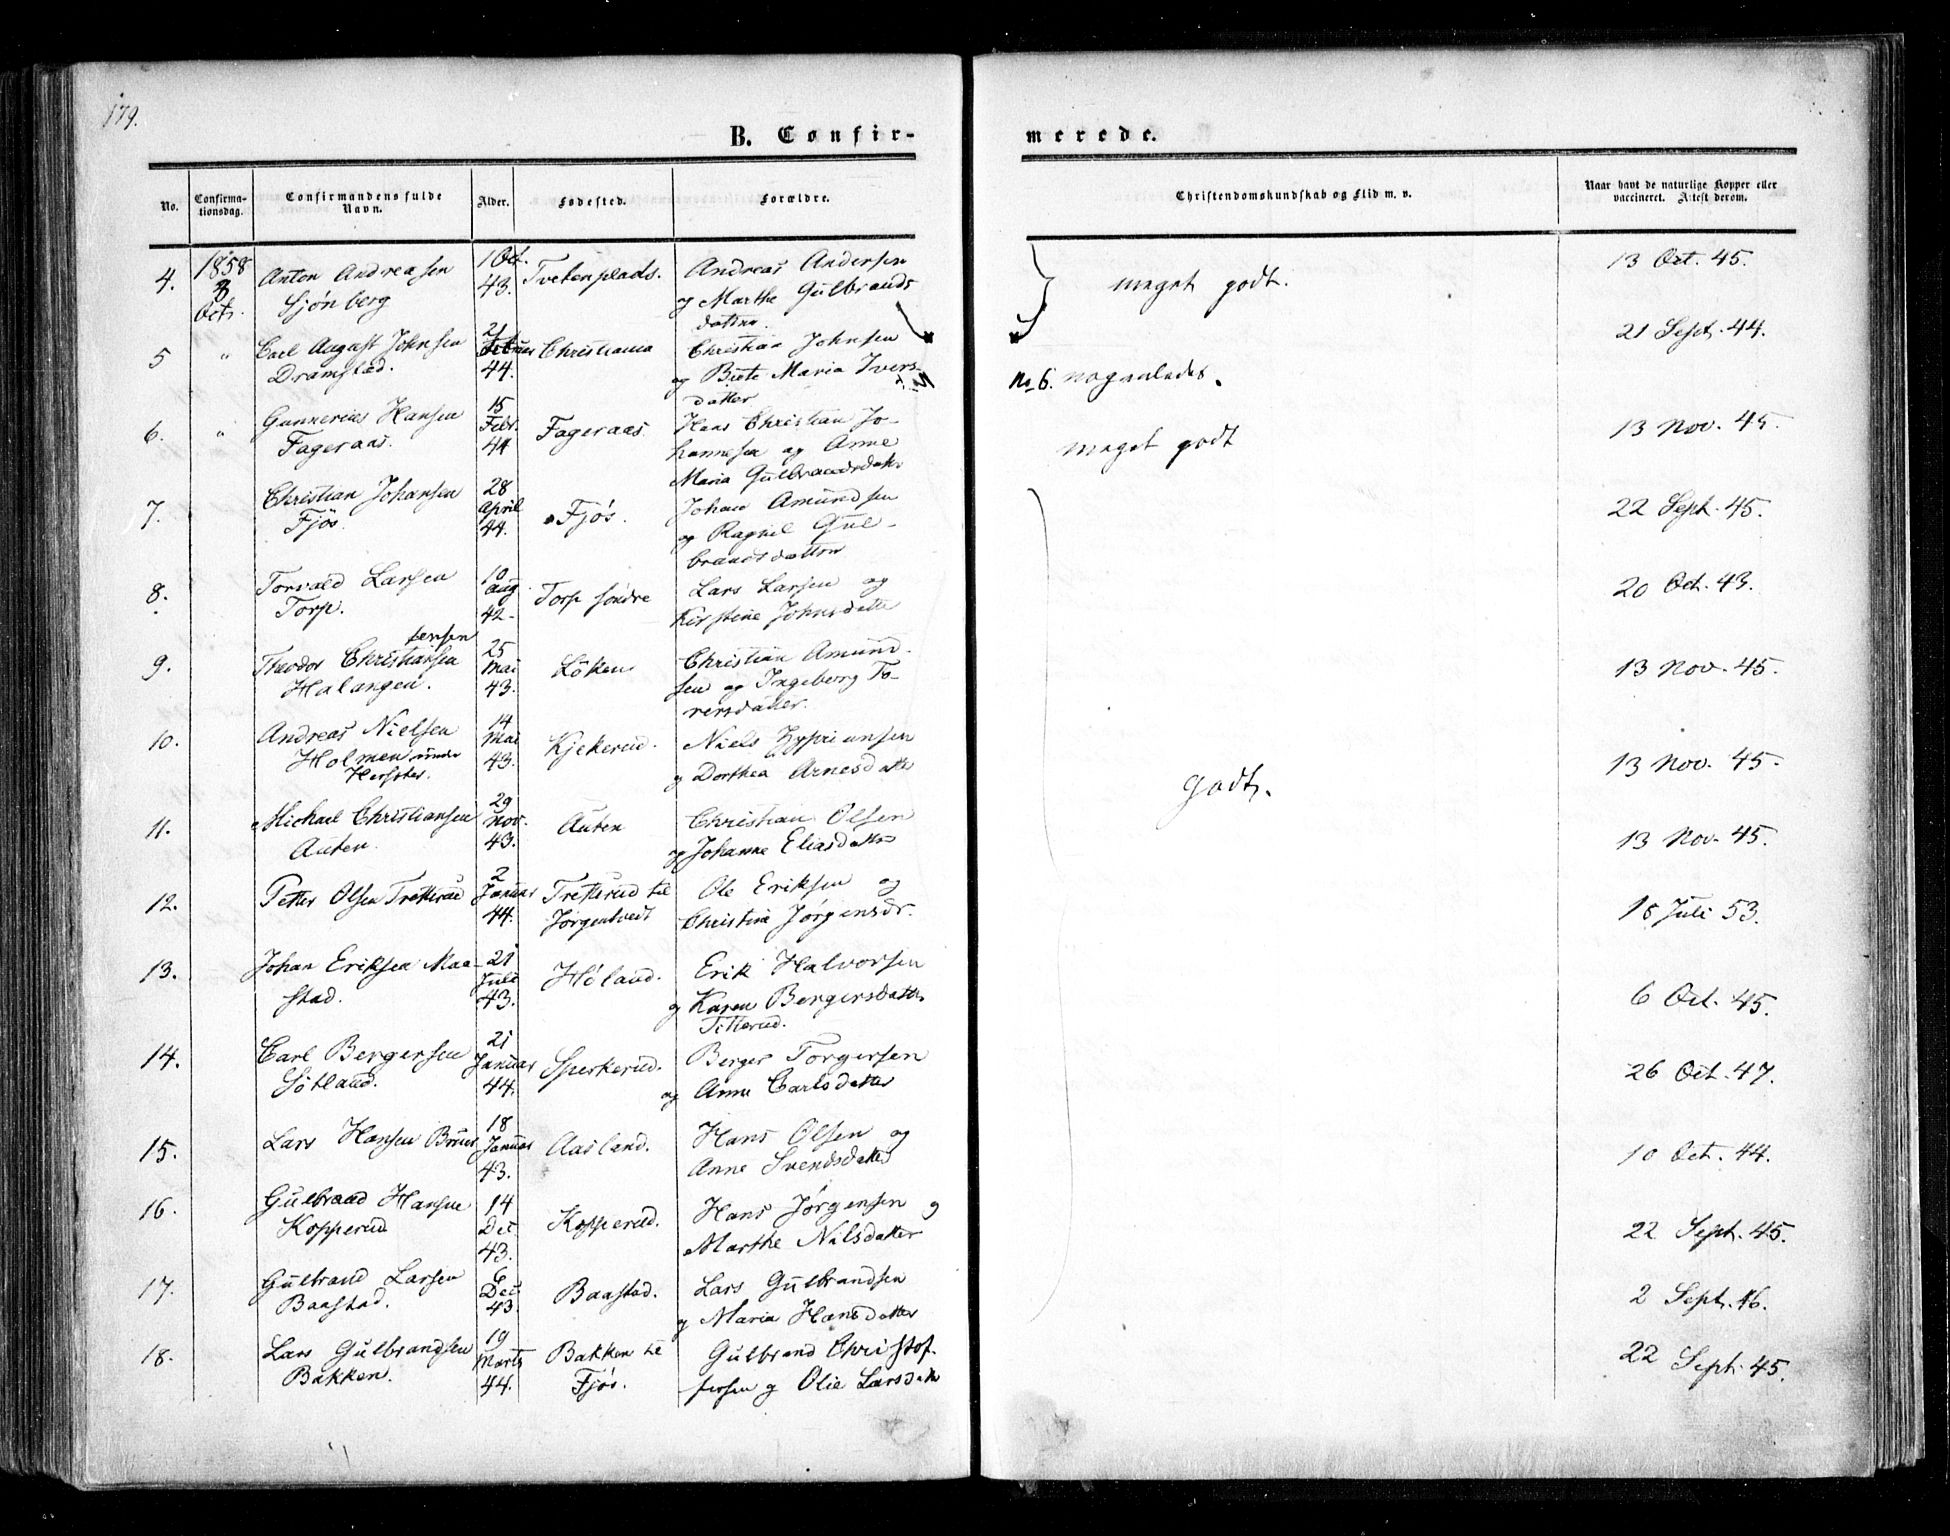 179.
B. Confirmerede.
No. Confirmationsdag. Confirmandens fulde Navn. Alder. Fødested. Forældre. Christendomskundskab og Flid m. v. Naar havt de naturlige Kopper eller vaccineret. Attest derom.
4. 1858 3 Octr. Anton Andreasen Sjönberg 1 Oct. 43. Tvetenplads. Andreas Andersen og Marthe Gulbrandsdatter. meget godt. 13 Oct. 45.
5 " Carl August Johnsen Dramstad. 21 Februar 44. Christiania Christian Johnsen og Birte Maria Iversdatter No 6. nogenledes. 21 Sept. 44.
6. " Gunnerius Hansen Fageraas. 15 Febr. 44 Fageraas Hans Christian Johannesen og Anne Maria Gulbrandsdatr meget godt 13 Nov. 45.
7. Christian Johansen Fjös. 28 April 44. Fjøs. Johan Amundsen og Ragnil Gulbrandsdatter 22 Sept. 45.
8. Torvald Larsen Torp. 10 Aug 42. Torp søndre Lars Larsen og Kirstine Johnsdatter 20 Oct. 43.
9. Theodor Christiansen tensen Halangen. 25 Mai 43. Löken Christian Amundsen og Ingeborg Torersdatter. 13 Nov. 45.
10. Andreas Nielsen Holmen under 14 Mai 43. Kjekerud. Niels Zypriansen og Dorthea Arnesdatter Godt. 13 Nov. 45.
11. Michael Christiansen Auten. 29 Nov. 43. Auten Christian Olsen og Johanne Eliasdatter 13 Nov. 45.
12. Petter Olsen Tretterud 2 Januar 44. Tretterud til Jörgentvedt Ole Eriksen og Christine Jørgensdr. Juli 53.
13. Johan Eriksen Maastad. 21 Juli 43. Høland. Erik Halvorsen og Karen Bergersdatter Titterud. 6 Oct. 45.
14. Carl Bergersen Søtland. 21 Januar 44. Sperkerud. Berger Torgersen og Anne Carlsdatter 26 Oct. 47.
15. Lars Hansen 18 Januar 43. Aasland. Hans Olsen og Anne Svendsdatter 10 Oct. 44.
16. Gulbrand Hansen Kopperud 14 Dec 43. Kopperud. Hans Jørgensen og Marthe Nilsdatter 22 Sept. 45.
17. Gulbrand Larsen Baastad. 6 Dec 43. Baastad. Lars Gulbrandsen og Maria Hansdatter 2 Sept. 46.
18. Lars Gulbrandsen Bakken. 19 Marts 44. Bakken til Fjøs. Gulbrand Christoffersen og Olie Larsdatr 22 Sept. 45.